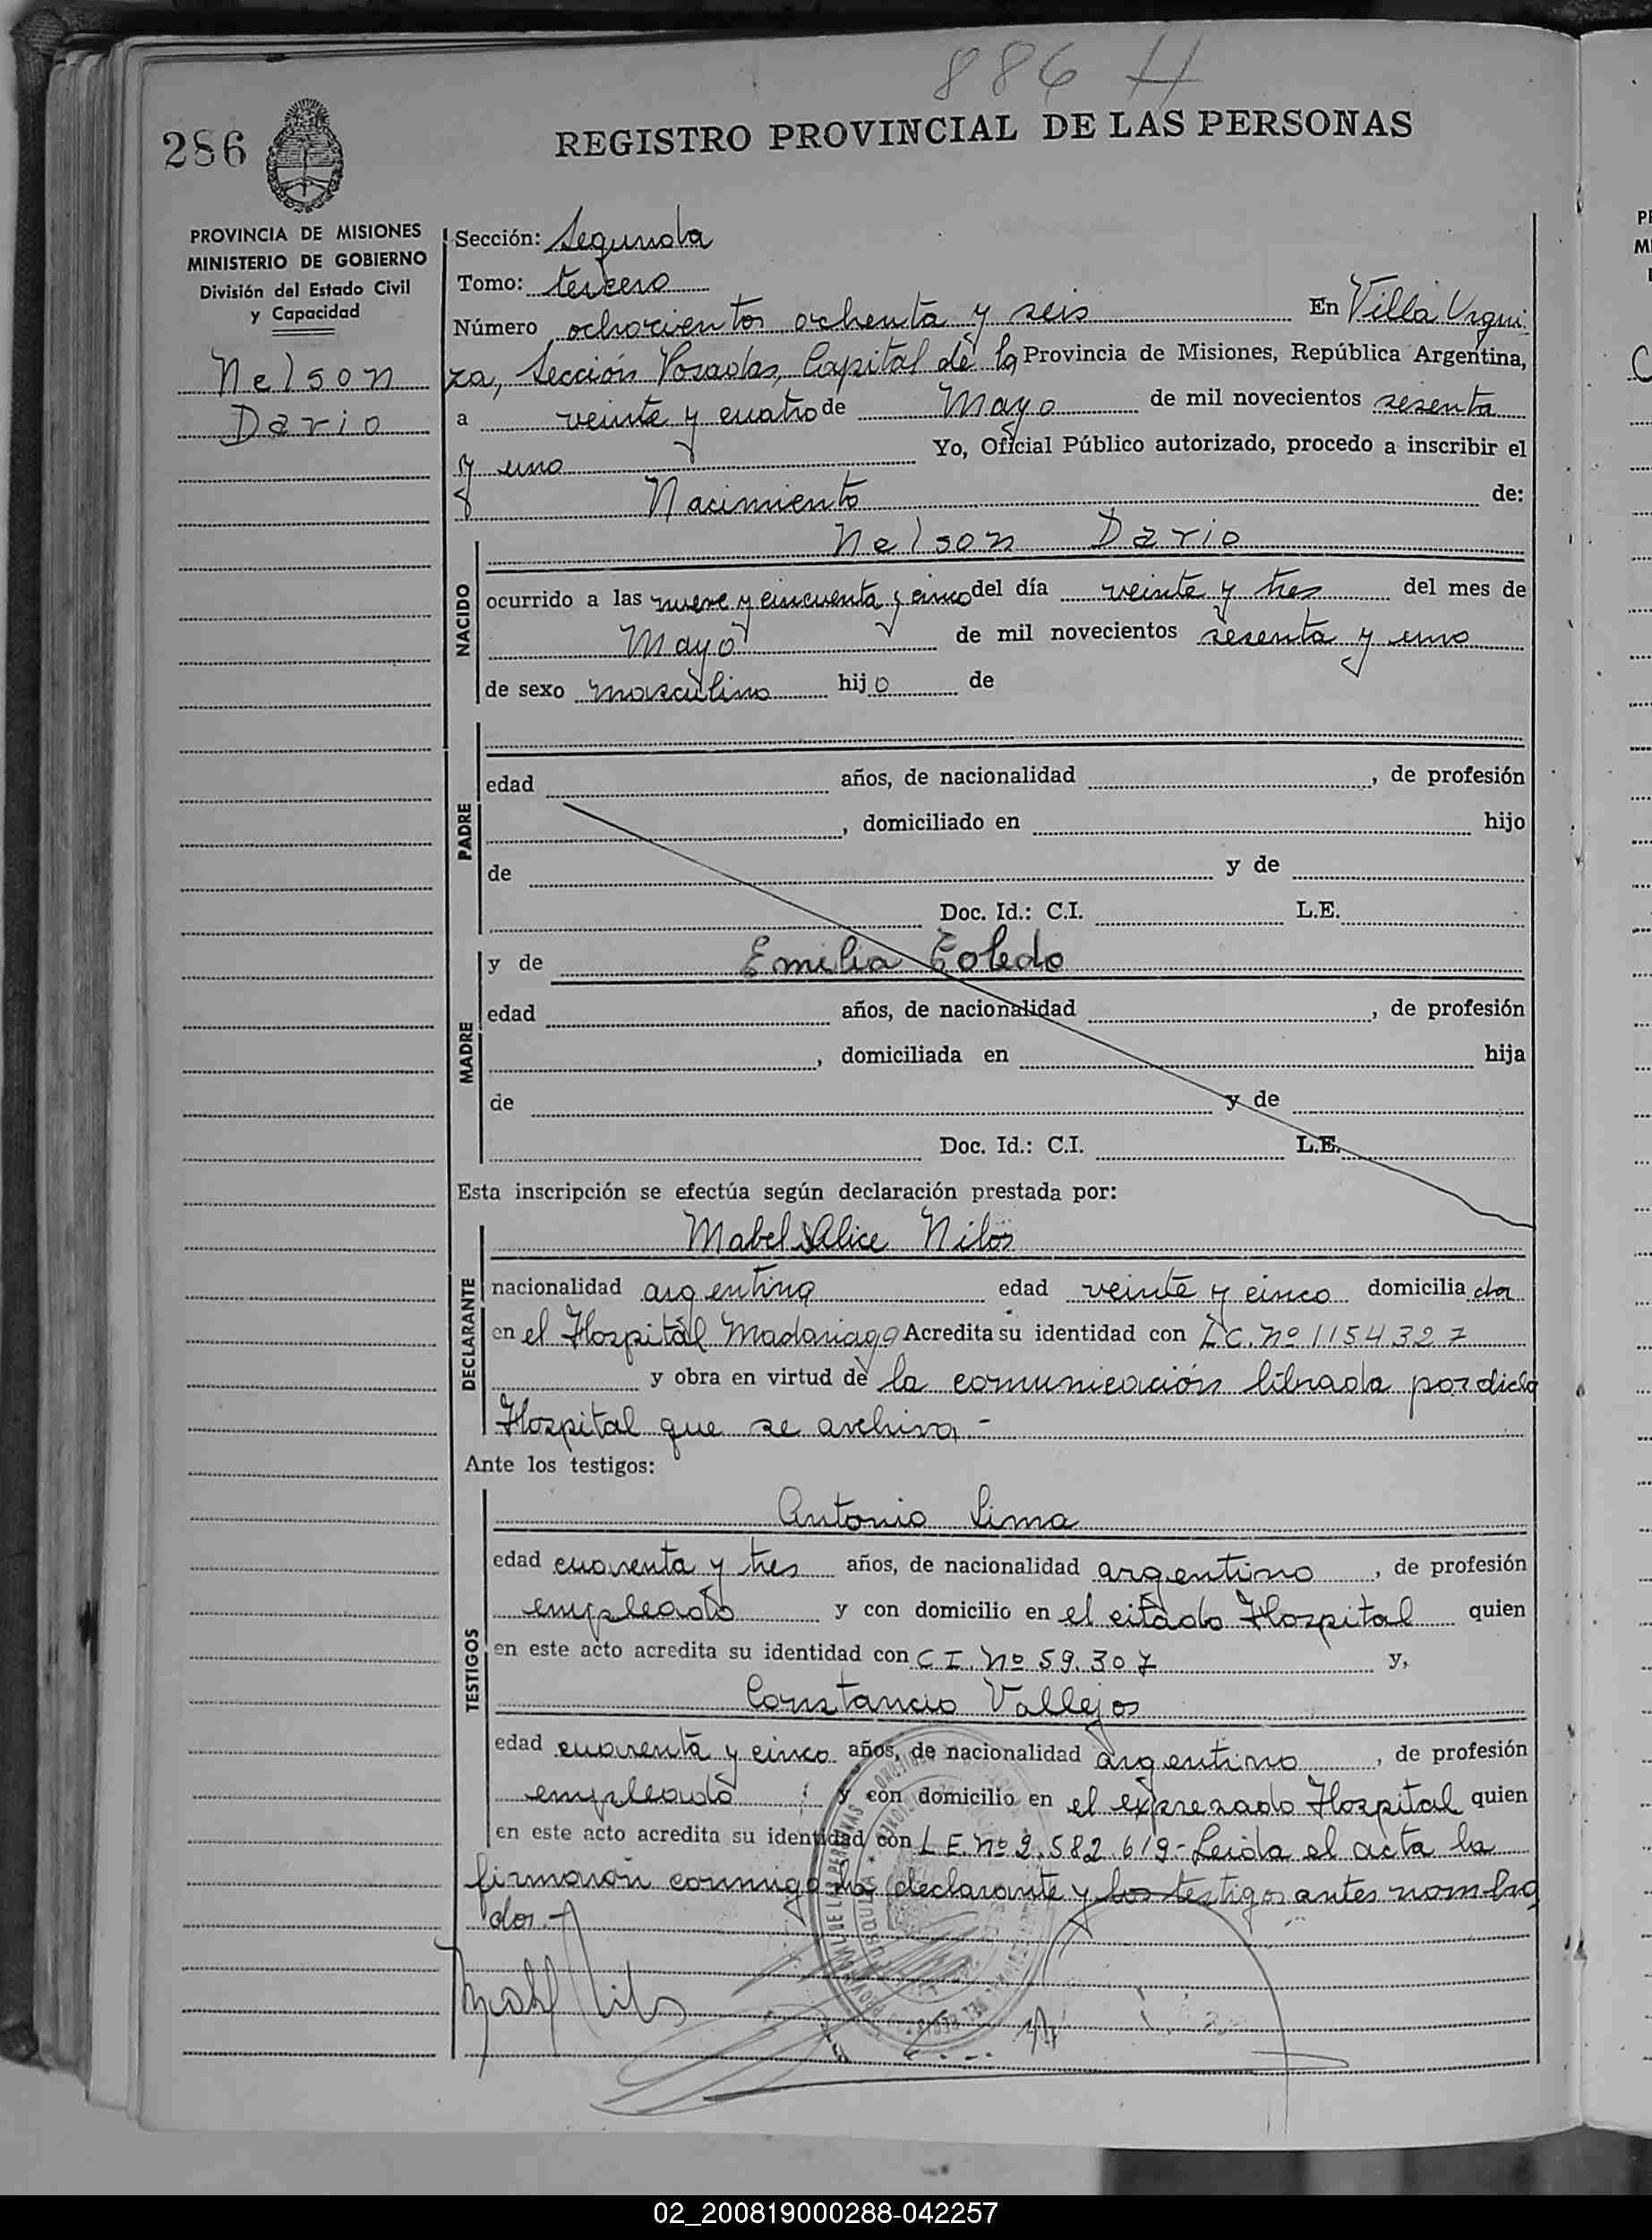 886 H
286
REGISTRO PROVINCIAL DE LAS PERSONAS
PROVINCIA DE MISIONES
MINISTERIO DE GOBIERNO
División del Estado Civil
y Capacidad
Nelson
Dario
Sección: Segunda
Tomo: tercero
Número ochocientos ochenta y seis En Villa Urqui
za, Sección Posadas, Capital de la Provincia de Misiones, República Argentina,
a veinte y cuatro de Mayo de mil novecientos sesenta
y uno Yo, Oficial Público autorizado, procedo a inscribir el
Nacimiento de:
NACIDO
Nelson Dario
ocurrido a las nueve y cincuenta y cinco del día veinte y tres del mes de
Mayo de mil novecientos sesenta y uno
de sexo masculino hijo de
PADRE
edad años, de nacionalidad , de profesión
, domiciliado en hijo
de y de
Doc. Id.: C.I. L.E.
MADRE
y de Emilia Toledo
edad años, de nacionalidad , de profesión
, domiciliada en hija
de y de
Doc. Id.: C.I. L.E.
Esta inscripción se efectúa según declaración prestada por:
DECLARANTE
Mabel Alice Nilos
nacionalidad argentina edad veinte y cinco domicilia da
en el Hospital Madariaga Acredita su identidad con L.C. Nº 1154327
y obra en virtud de la comunicación librada por dicho
Hospital que se archiva -
Ante los testigos:
TESTIGOS
Antonio Lima
edad cuarenta y tres años, de nacionalidad argentino , de profesión
empleado y con domicilio en el citado Hospital quien
en este acto acredita su identidad con C I. Nº 59.307 y,
Constancio Vallejos
edad cuarenta y cinco años, de nacionalidad argentino , de profesión
empleado y con domicilio en el expresado Hospital quien
en este acto acredita su identidad con L E. Nº 2.582.619- Leida el acta la
firmaron conmigo la declarante y los testigos antes nombra
dos.-
02_200819000288-042257